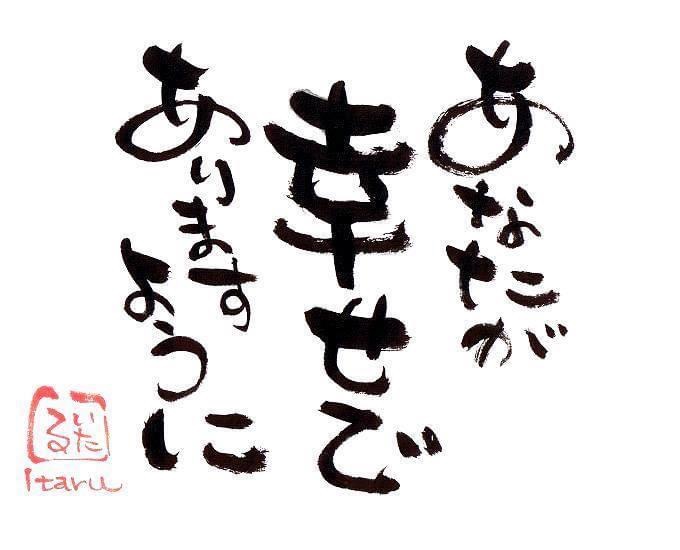 あなたが
幸せで
ありますように
いたる
Itaru